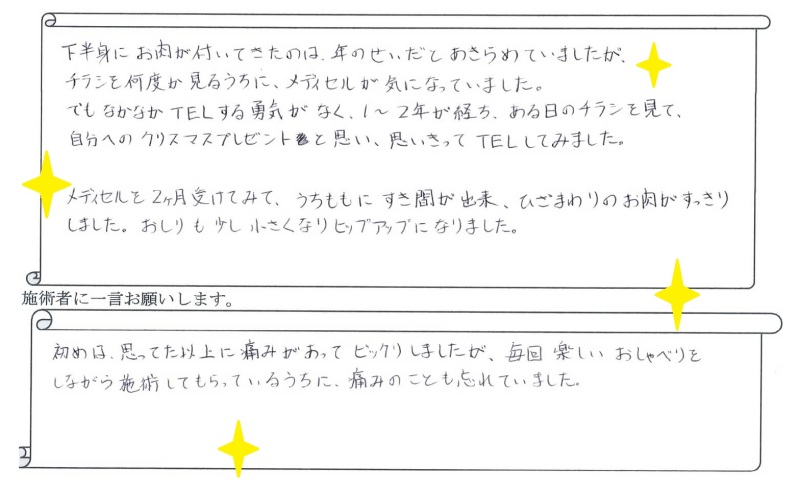 下半身に お肉が付いてきたのは、年のせいだと あきらめていましたが、
チラシを何度か見るうちに、メディセルが気になっていました。
でもなかなかTELする勇気がなく、1〜2年が経ち、ある日のチラシを見て、
自分へのクリスマスプレゼントと思い、思いきってTELしてみました。
メディセルを2ヶ月受けてみて、うちももにすき間が出来、ひざまわりのお肉がすっきり
しました。おしりも少し小さくなりヒップアップになりました。
施術者に一言お願いします。
初めは、思ってた以上に痛みがあってビックリしましたが、毎回楽しいおしゃべりを
しながら施術してもらっているうちに、痛みのことも忘れていました。